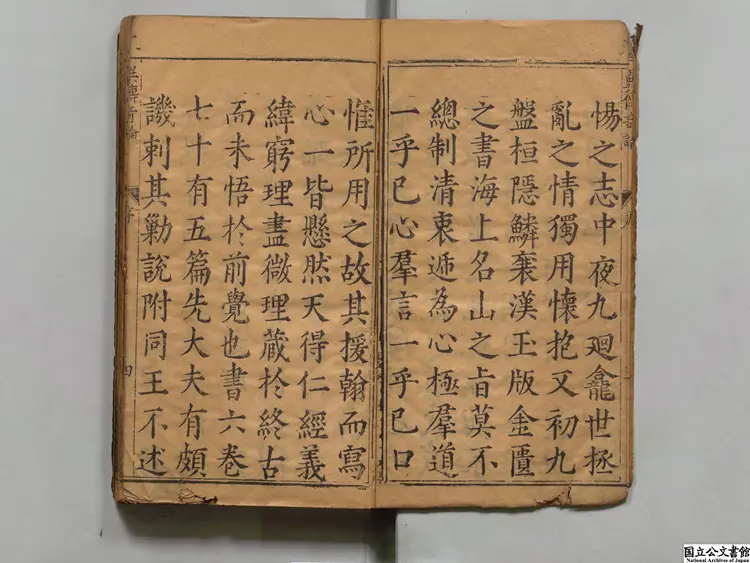 惕之志中夜九廻龕世拯
亂之情獨用懷抱又初九
盤桓隱鱗襄漢玉版金匱
之書海上名山之㫖莫不
總制清衷遞為心極羣道
一乎已心羣言一乎已口
惟所用之故其援翰而寫
心一皆懸然天得仁經義
緯窮理盡微理蔵於終古
而未悟於前覺也書六巻
七十有五篇先大夫有頗
譏刺其勦說附同王不述
序
四
国立公文書館
National Archives of Japan